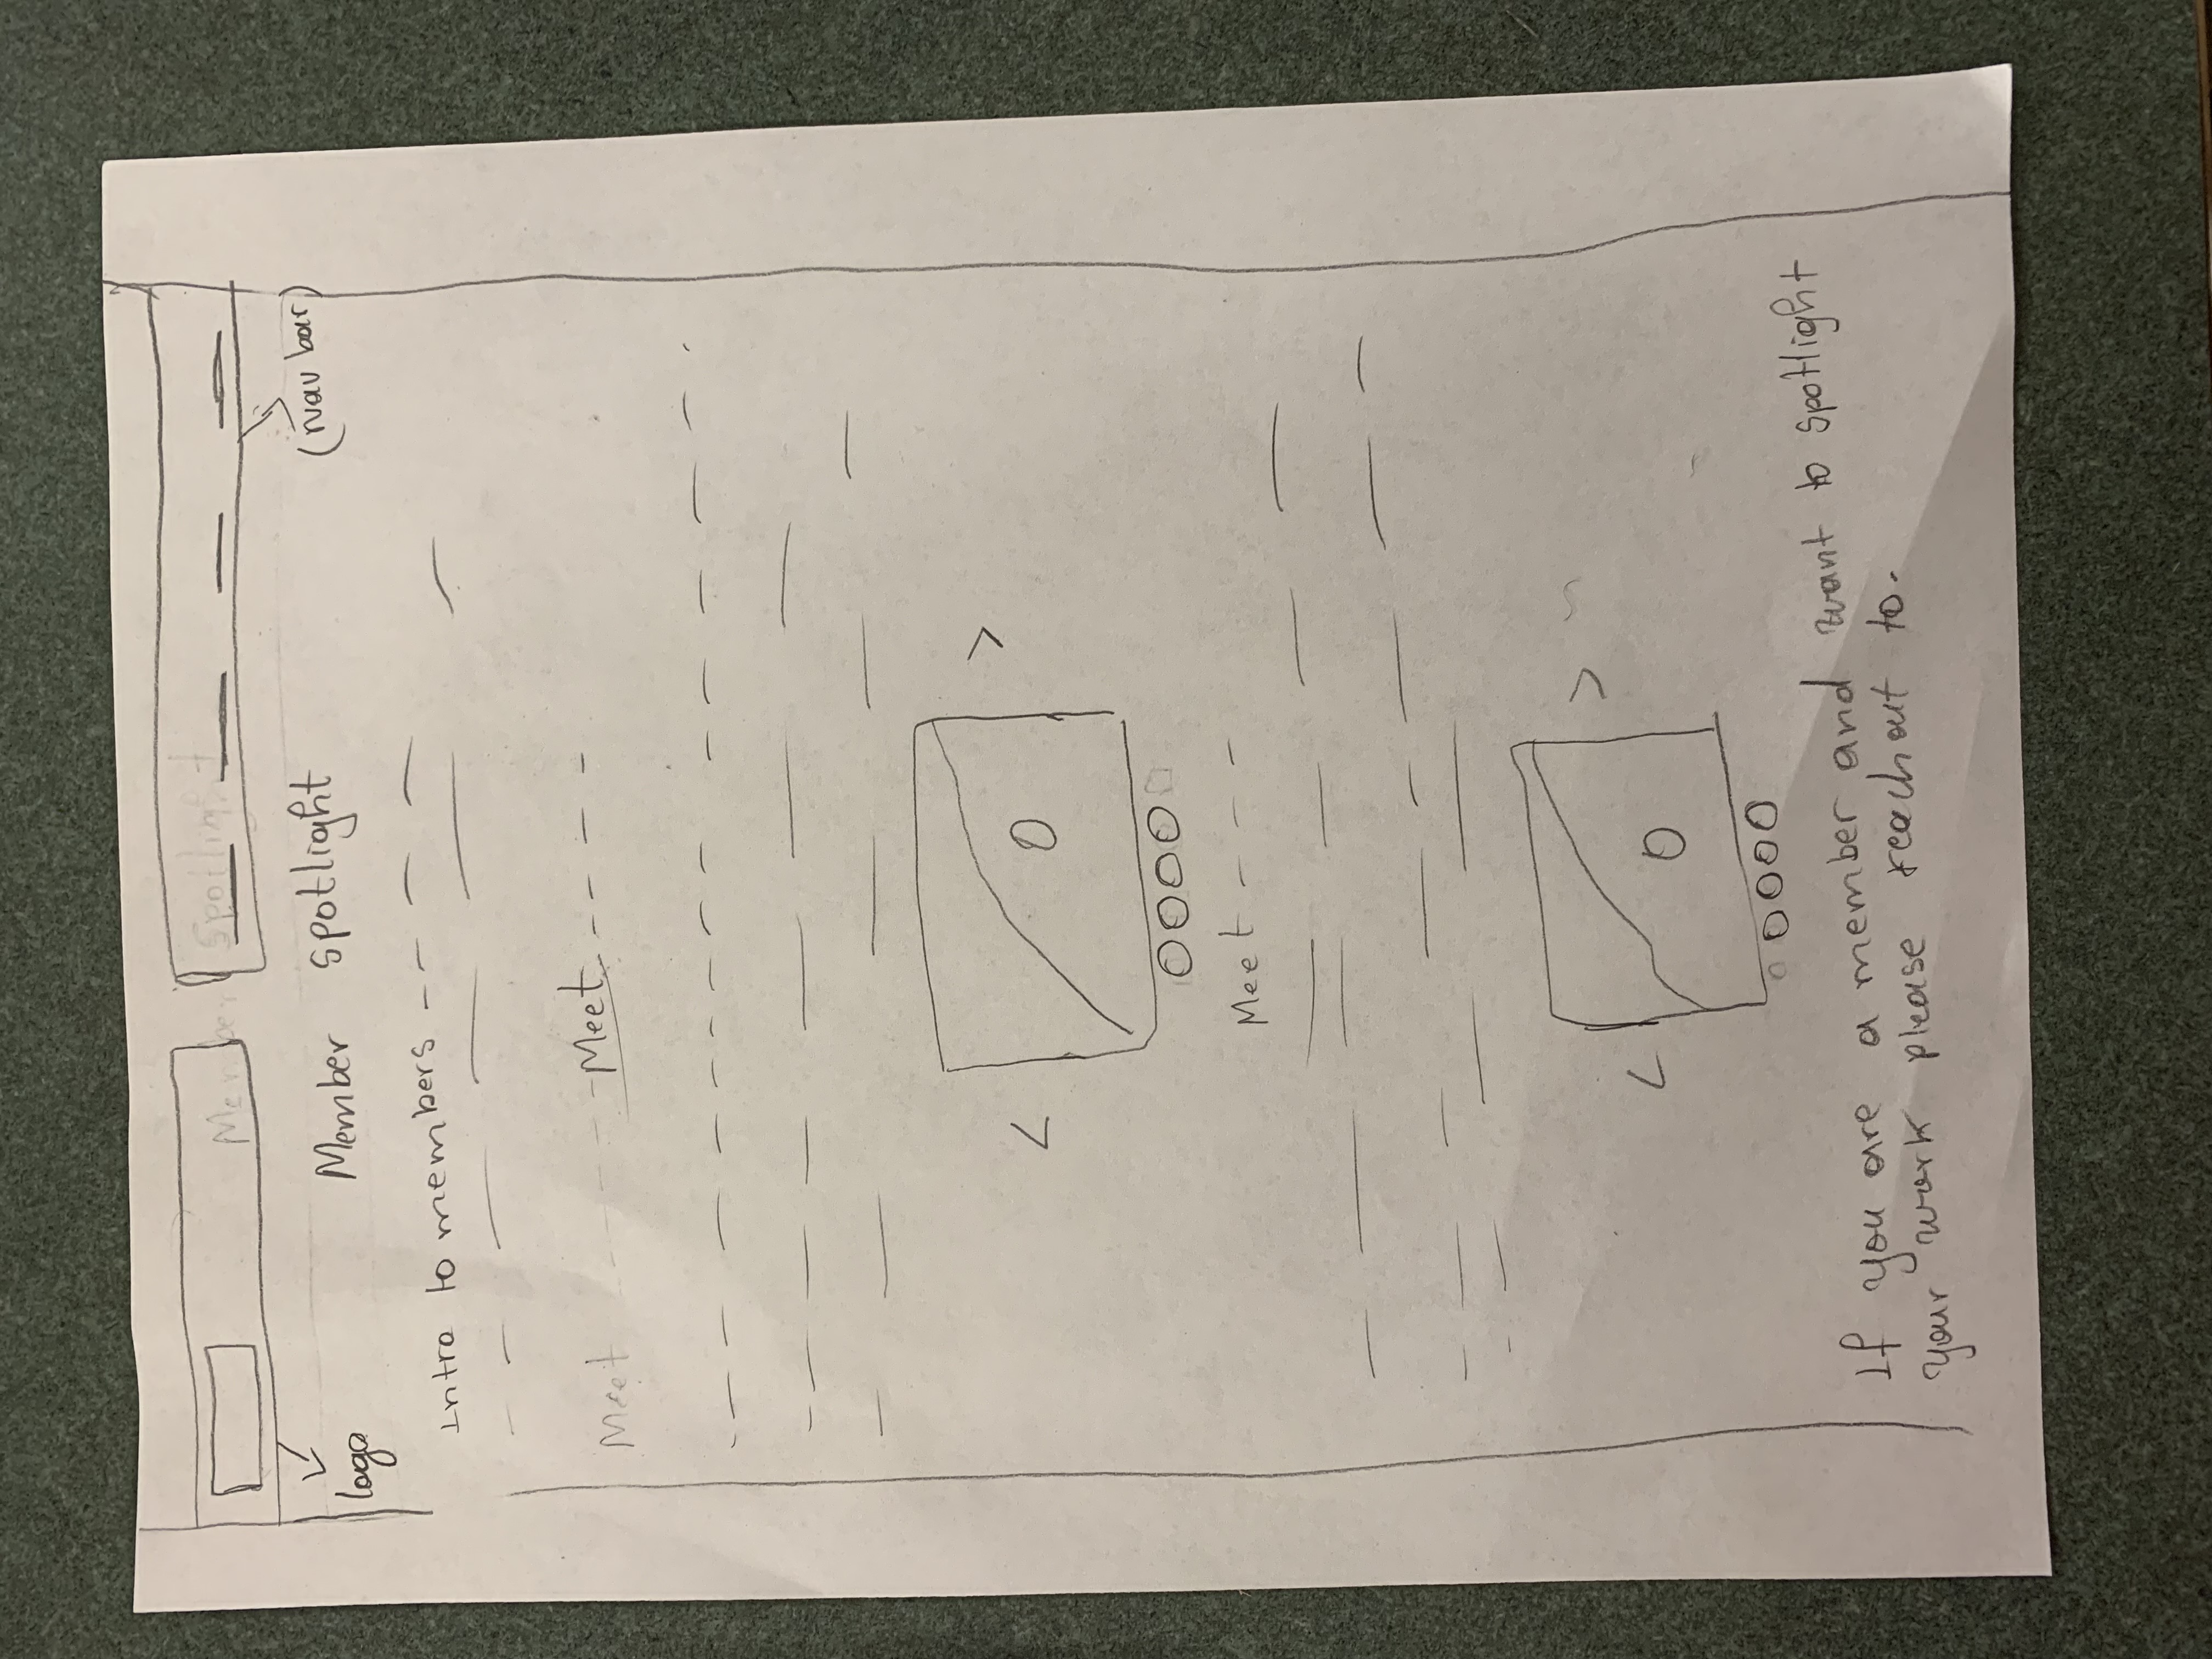 Member Spotlight
logo
Member spotlight
(nav bar)
Intro to members
Meet
Meet
Meet
If you are a member and want to spotlight
your work please reachout to.